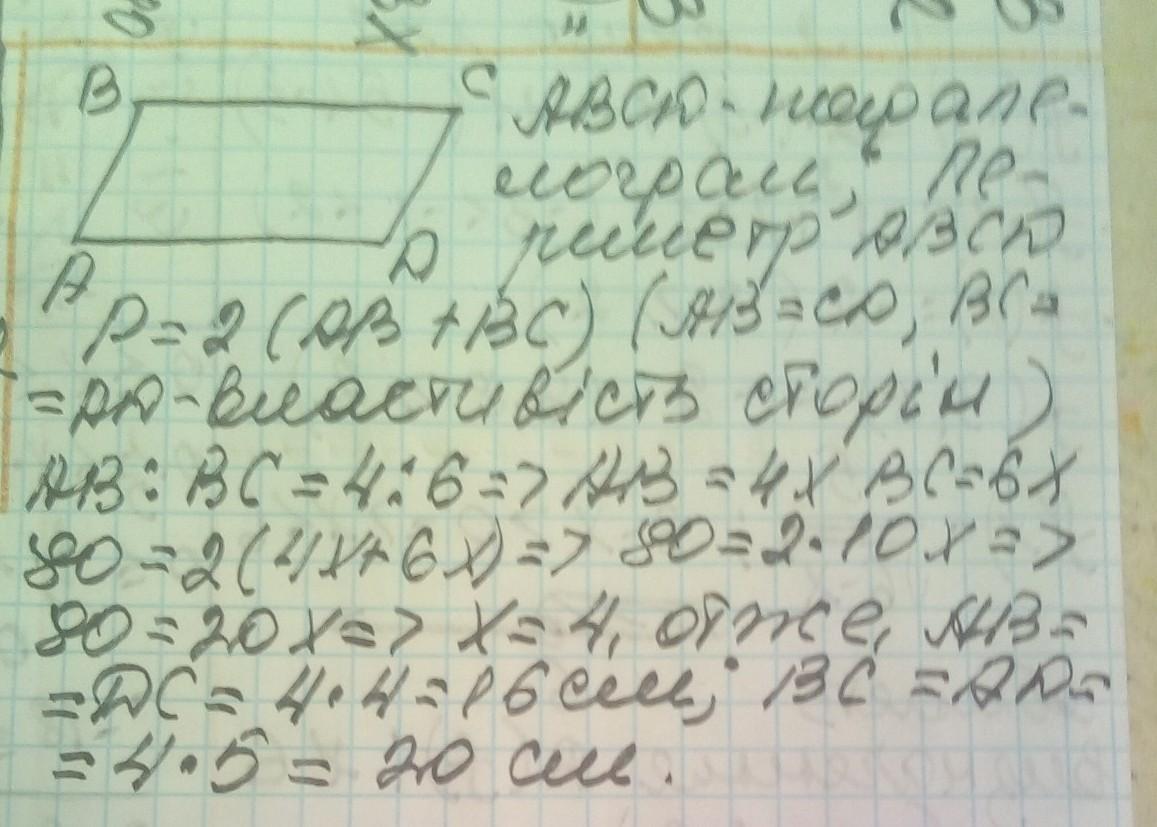 B
C
ABCD - парале-
лограм; Пе-
риметр ABCD
A
D
P = 2 (AB + BC) (AB = CD, BC =
= AD - властивість сторін)
AB : BC = 4 : 6 => AB = 4x BC = 6x
80 = 2(4x+6x) => 80 = 2·10x =>
80 = 20x => x = 4, отже, AB =
= DC = 4·4 = 16 см; BC = AD =
= 4·5 = 20 см.